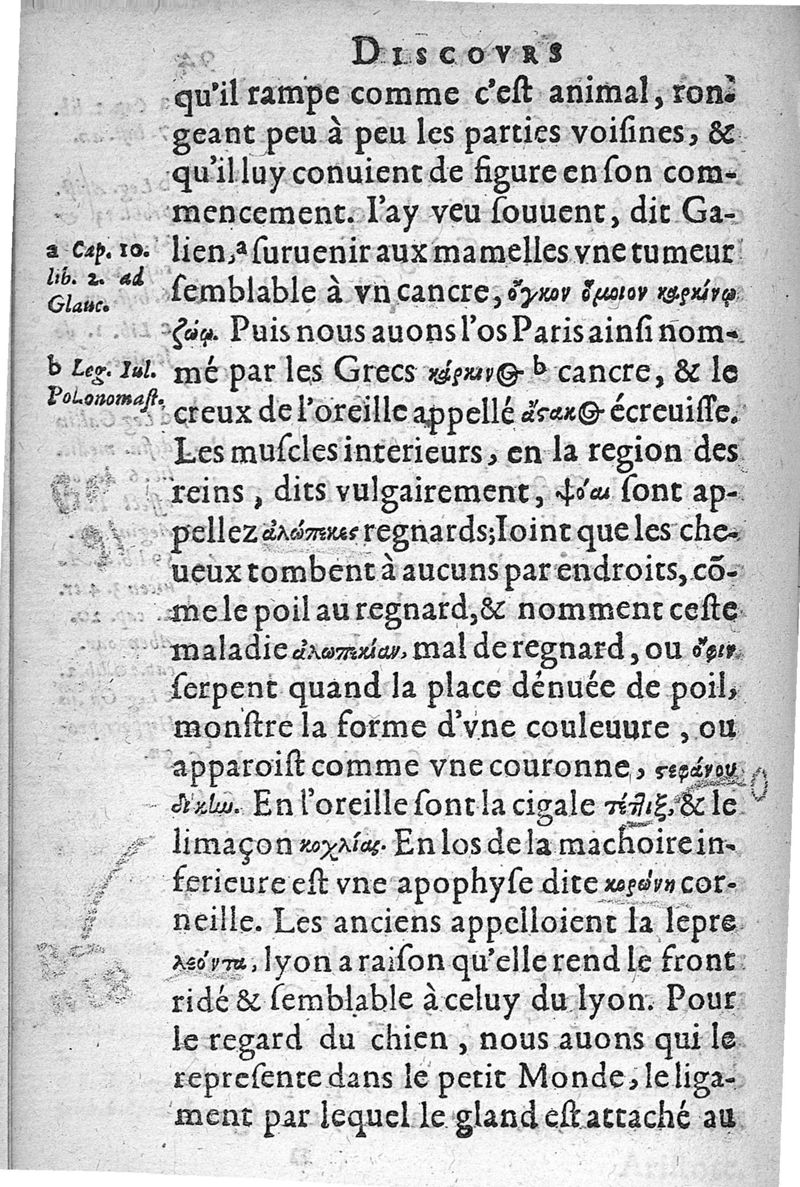 DISCOVRS
qu'il rampe comme c'eſt animal, ron-
geant peu à peu les parties voiſines, &
qu'il luy conuient de figure en ſon com-
mencement. I'ay veu ſouuent, dit Ga-
lien,ᵃ ſuruenir aux mamelles vne tumeur
a Cap. 10.
lib. 2. ad
Glauc.
ſemblable à vn cancre, ὄγκον ὅμοιον καρκίνῳ
ζώῳ. Puis nous auons l'os Paris ainſi nom-
mé par les Grecs κάρκινος ᵇ cancre, & le
b Leg. Iul.
Pol. onomaſt.
creux de l'oreille appellé ἄστακος écreuiſſe.
Les muſcles interieurs, en la region des
reins, dits vulgairement, ψόαι ſont ap-
pellez ἀλώπεκες regnards; Ioint que les che-
ueux tombent à aucuns par endroits, cõ-
me le poil au regnard, & nomment ceſte
maladie ἀλωπεκίαν, mal de regnard, ou ὄφιν
ſerpent quand la place dénuée de poil,
monſtre la forme d'vne couleuure, ou
apparoiſt comme vne couronne, στεφάνου
δίκην. En l'oreille ſont la cigale τέτλιξ, & le
limaçon κοχλίας. En los de la machoire in-
ferieure eſt vne apophyſe dite κορώνη cor-
neille. Les anciens appelloient la lepre
λεόντα, lyon a raiſon qu'elle rend le front
ridé & ſemblable à celuy du lyon. Pour
le regard du chien, nous auons qui le
repreſente dans le petit Monde, le liga-
ment par lequel le gland eſt attaché au